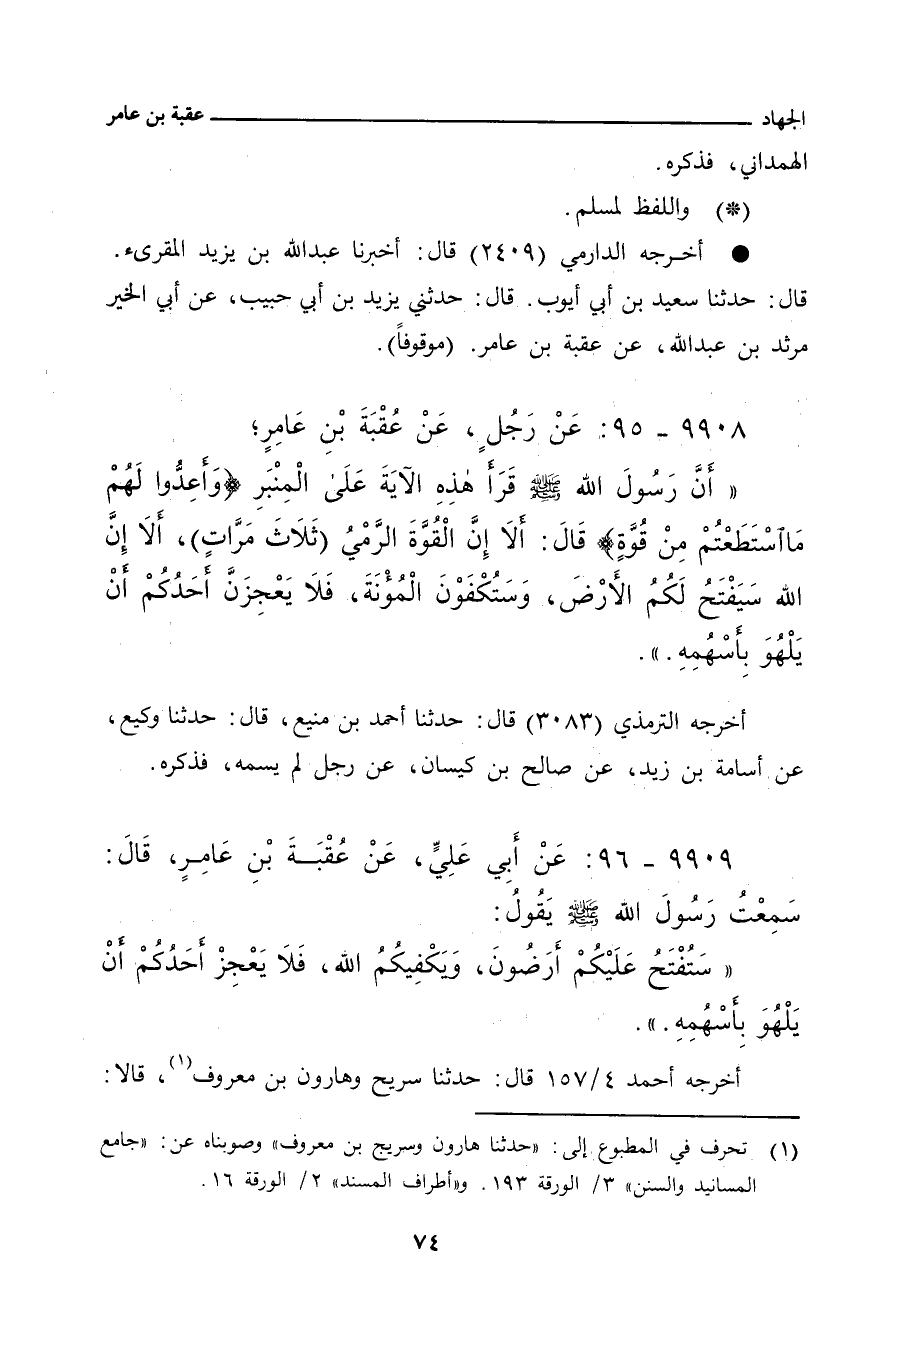 الجهاد ــــــــــ عقبة بن عامر
الهمداني، فذكره.
(*) واللفظ لمسلم.
● أخرجه الدارمي (٢٤٠٩) قال: أخبرنا عبدالله بن يزيد المقرىء.
قال: حدثنا سعيد بن أبي أيوب. قال: حدثني يزيد بن أبي حبيب، عن أبي الخير
مرثد بن عبدالله، عن عقبة بن عامر. (موقوفاً).
٩٩٠٨ ـ ٩٥: عَنْ رَجُلٍ، عَنْ عُقْبَةَ بْنِ عَامِرٍ؛
« أَنَّ رَسُولَ الله ﷺ قَرَأَ هٰذِهِ الآيَةَ عَلَىٰ الْمِنْبَرِ ﴿وَأَعِدُّوا لَهُمْ
مَاآسْتَطَعْتُمْ مِنْ قُوَّةٍ﴾ قَالَ: أَلَا إِنَّ الْقُوَّةَ الرَّمْيُ (ثَلَاثَ مَرَّاتٍ)، أَلَا إِنَّ
الله سَيَفْتَحُ لَكُمُ الأَرْضَ، وَسَتُكْفَوْنَ الْمُؤْنَةَ، فَلَا يَعْجِزَنَّ أَحَدُكُمْ أَنْ
يَلْهُوَ بِأَسْهُمِهِ.».
أخرجه الترمذي (٣٠٨٣) قال: حدثنا أحمد بن منيع، قال: حدثنا وكيع،
عن أسامة بن زيد، عن صالح بن كيسان، عن رجل لم يسمه، فذكره.
٩٩٠٩ ـ ٩٦: عَنْ أَبِي عَلِيٍّ، عَنْ عُقْبَـةَ بْنِ عَامِرٍ، قَالَ:
سَمِعْتُ رَسُولَ الله ﷺ يَقُولُ:
« سَتُفْتَحُ عَلَيْكُمْ أَرَضُونَ، وَيَكْفِيكُمُ الله، فَلَا يَعْجِزْ أَحَدُكُمْ أَنْ
يَلْهُوَ بِأَسْهُمِهِ.».
أخرجه أحمد ١٥٧/٤ قال: حدثنا سريج وهارون بن معروف(١)، قالا:
(١) تحرف في المطبوع إلى: «حدثنا هارون وسريج بن معروف» وصوبناه عن: «جامع
المسانيد والسنن» ٣/ الورقة ١٩٣. و«أطراف المسند» ٢/ الورقة ١٦.
٧٤